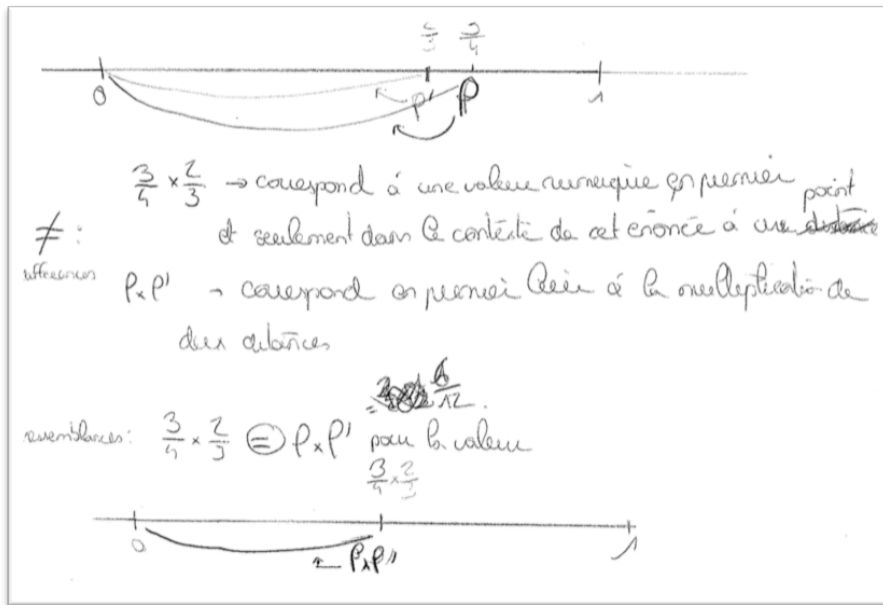 2/3 3/4
0 P' P 1
3/4 × 2/3 → correspond à une valeur numérique en premier
point
≠ : et seulement dans le contexte de cet énoncé à une distance
différences
P × P' → correspond en premier lieu à la multiplication de
deux distances
= 6/12
ressemblances: 3/4 × 2/3 = P × P' pour la valeur
3/4 × 2/3
0 1
← P × P'